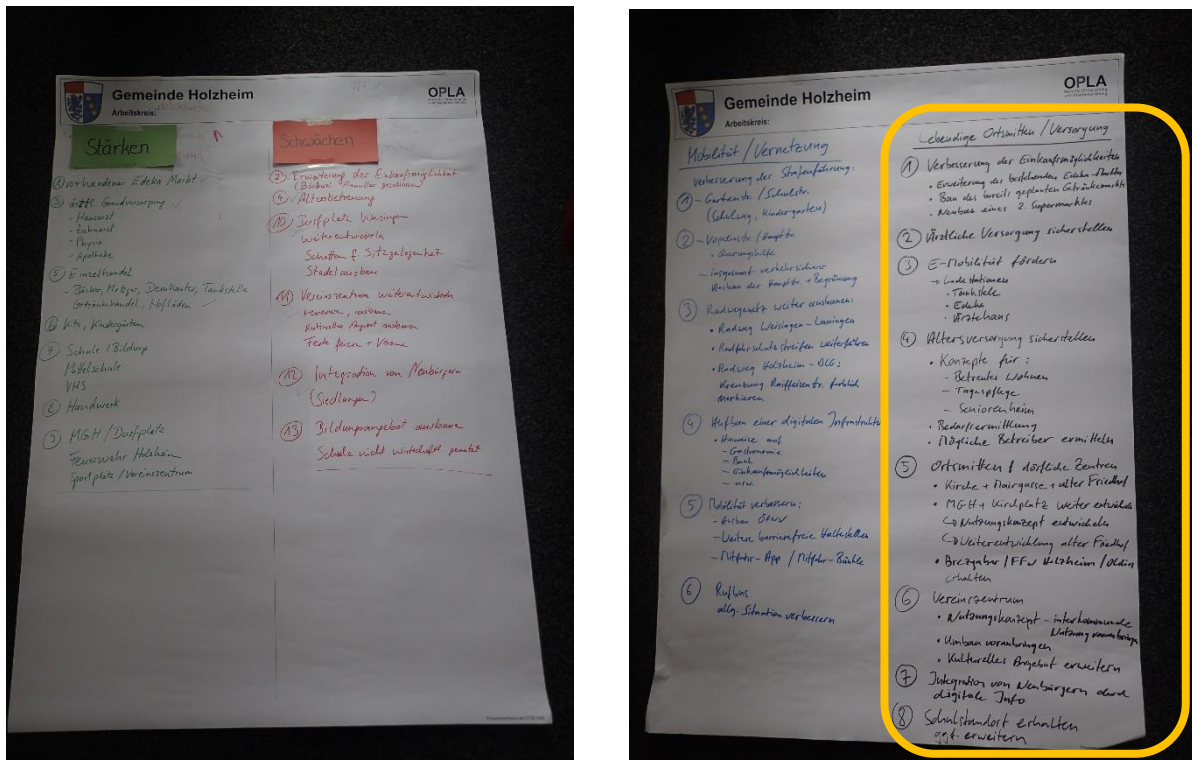 Gemeinde Holzheim
Arbeitskreis:
OPLA
Stärken
① vorhandener Edeka Markt
③ ärztl. Grundversorgung
- Hausarzt
- Zahnarzt
- Physio
- Apotheke
⑤ Einzelhandel
- Bäcker, Metzger, Tankstelle
Getränkehandel, Hofläden
⑥ Kita, Kindergärten
⑦ Schule + Bildung
Mittelschule
VHS
⑧ Handwerk
⑨ MGH / Dorfplatz
Feuerwehr Holzheim
Sportplatz / Vereinszentrum
Schwächen
② Erweiterung der Einkaufsmöglichkeit
④ Altersbetreuung
⑩ Dorfplatz Weisingen
weiterentwickeln
Schatten f. Sitzgelegenheit
Stadel ausbau
⑪ Vereinszentrum weiterentwickeln
kulturelles Angebot ausbauen
Feste feiern +
⑫ Integration von Neubürgern
(Siedlungen)
⑬ Bildungsangebot ausbauen
Schule nicht wirtschaftl. genutzt
Gemeinde Holzheim
Arbeitskreis:
OPLA
Mobilität / Vernetzung
Verbesserung der Straßenführung:
① - Gartenstr. / Schulstr.
(Schulweg, Kindergarten)
② - / Hauptstr.
• Querungshilfe
- insgesamt verkehrssicherer
Ausbau der Hauptstr. + Begrünung
③ Radwegenetz weiter ausbauen:
• Radweg Weisingen - Lauingen
• Radfahrschutzstreifen weiterführen
• Radweg Holzheim - DLG:
Kreuzung Raiffeisenstr. farblich
markieren
④ Aufbau einer digitalen Infrastruktur
• Hinweise auf
- Gastronomie
- Bank
- Einkaufsmöglichkeiten
- usw.
⑤ Mobilität verbessern:
- Ausbau ÖPNV
- Weitere barrierefreie Haltestellen
- Mitfahr-App / Mitfahr-Bänkle
⑥ Rufbus
allg. Situation verbessern
Lebendige Ortsmitten / Versorgung
① Verbesserung der Einkaufsmöglichkeiten
• Erweiterung des bestehenden Edeka-Marktes
• Bau des bereits geplanten Getränkemarkts
• Neubau eines 2. Supermarktes
② Ärztliche Versorgung sicherstellen
③ E-Mobilität fördern
→ Ladestationen
• Tankstelle
• Edeka
• Ärztehaus
④ Altersversorgung sicherstellen
• Konzepte für:
- Betreutes Wohnen
- Tagespflege
- Seniorenheim
• Bedarfsermittlung
• Mögliche Betreiber ermitteln
⑤ Ortsmitten / dörfliche Zentren
• Kirche + Mairgasse + alter Friedhof
• MGH + Kirchplatz weiter entwickeln
↳ Nutzungskonzept entwickeln
↳ Weiterentwicklung alter Friedhof
• / FFW Holzheim / Oldies
erhalten
⑥ Vereinszentrum
• Nutzungskonzept - interkommunale
Nutzung voranbringen
• Umbau voranbringen
• Kulturelles Angebot erweitern
⑦ Integration von Neubürgern durch
digitale Info
⑧ Schulstandort erhalten
ggf. erweitern